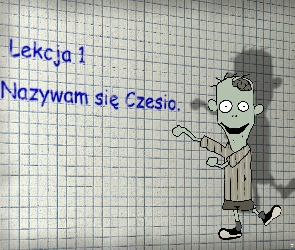 Lekcja 1
Nazywam się Czesio.